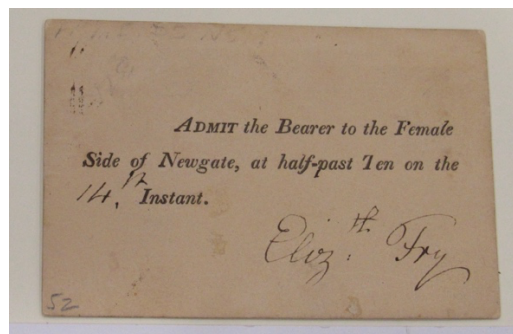 ADMIT the Bearer to the Female
Side of Newgate, at half-past Ten on the
14.th Instant.
Eliz.th Fry
52